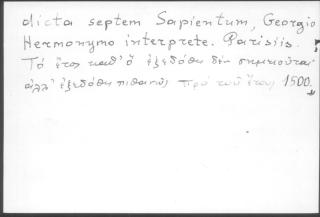 dicta septem Sapientum, Georgio
Hermonymo interprete. Parisiis.
Τό ἔτος καθ' ὅ ἐξεδόθη δέν σημειοῦται
ἀλλ' ἐξεδόθη πιθανῶς πρό τοῦ ἔτους 1500.